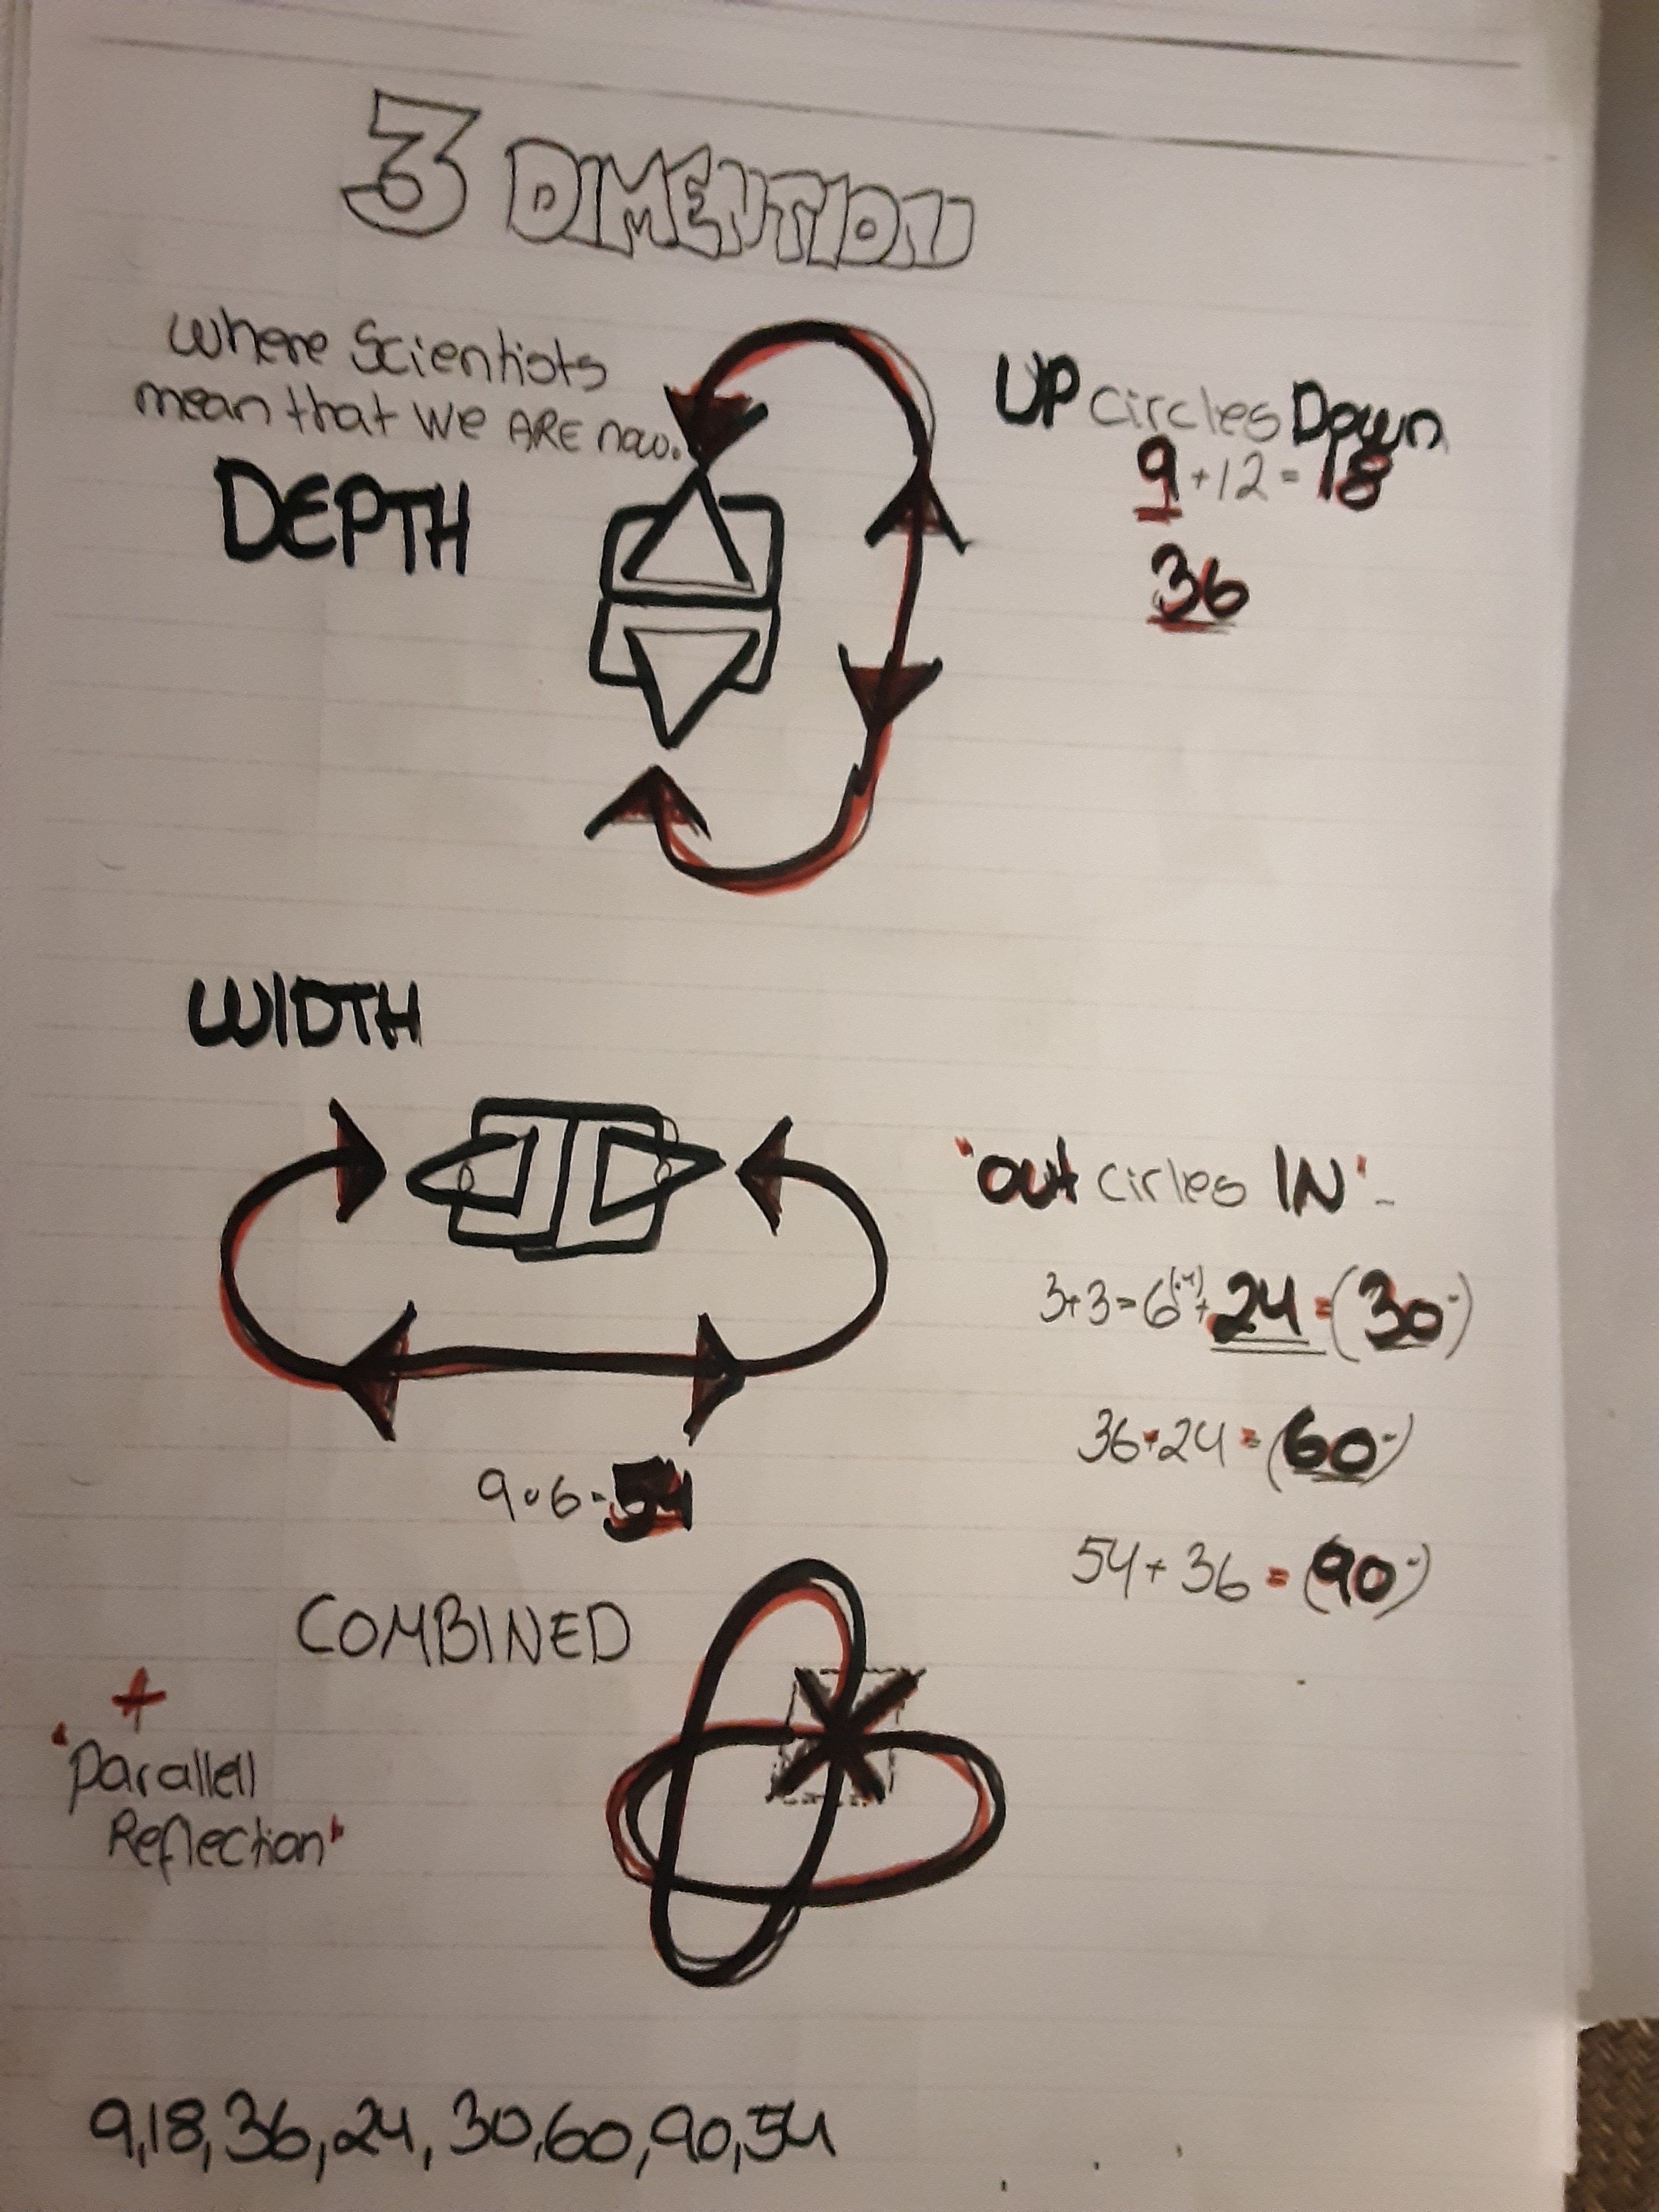 3 DIMENTION
where Scientists
mean that we ARE now.
DEPTH
UP circles Down
9 +12 = 18
36
WIDTH
"out cirles IN"-
3+3=6 + 24 = (30·)
36+24 = (60·)
9·6=54
54+36 = (90·)
COMBINED
+
"parallell
Reflection"
9,18,36,24,30,60,90,54